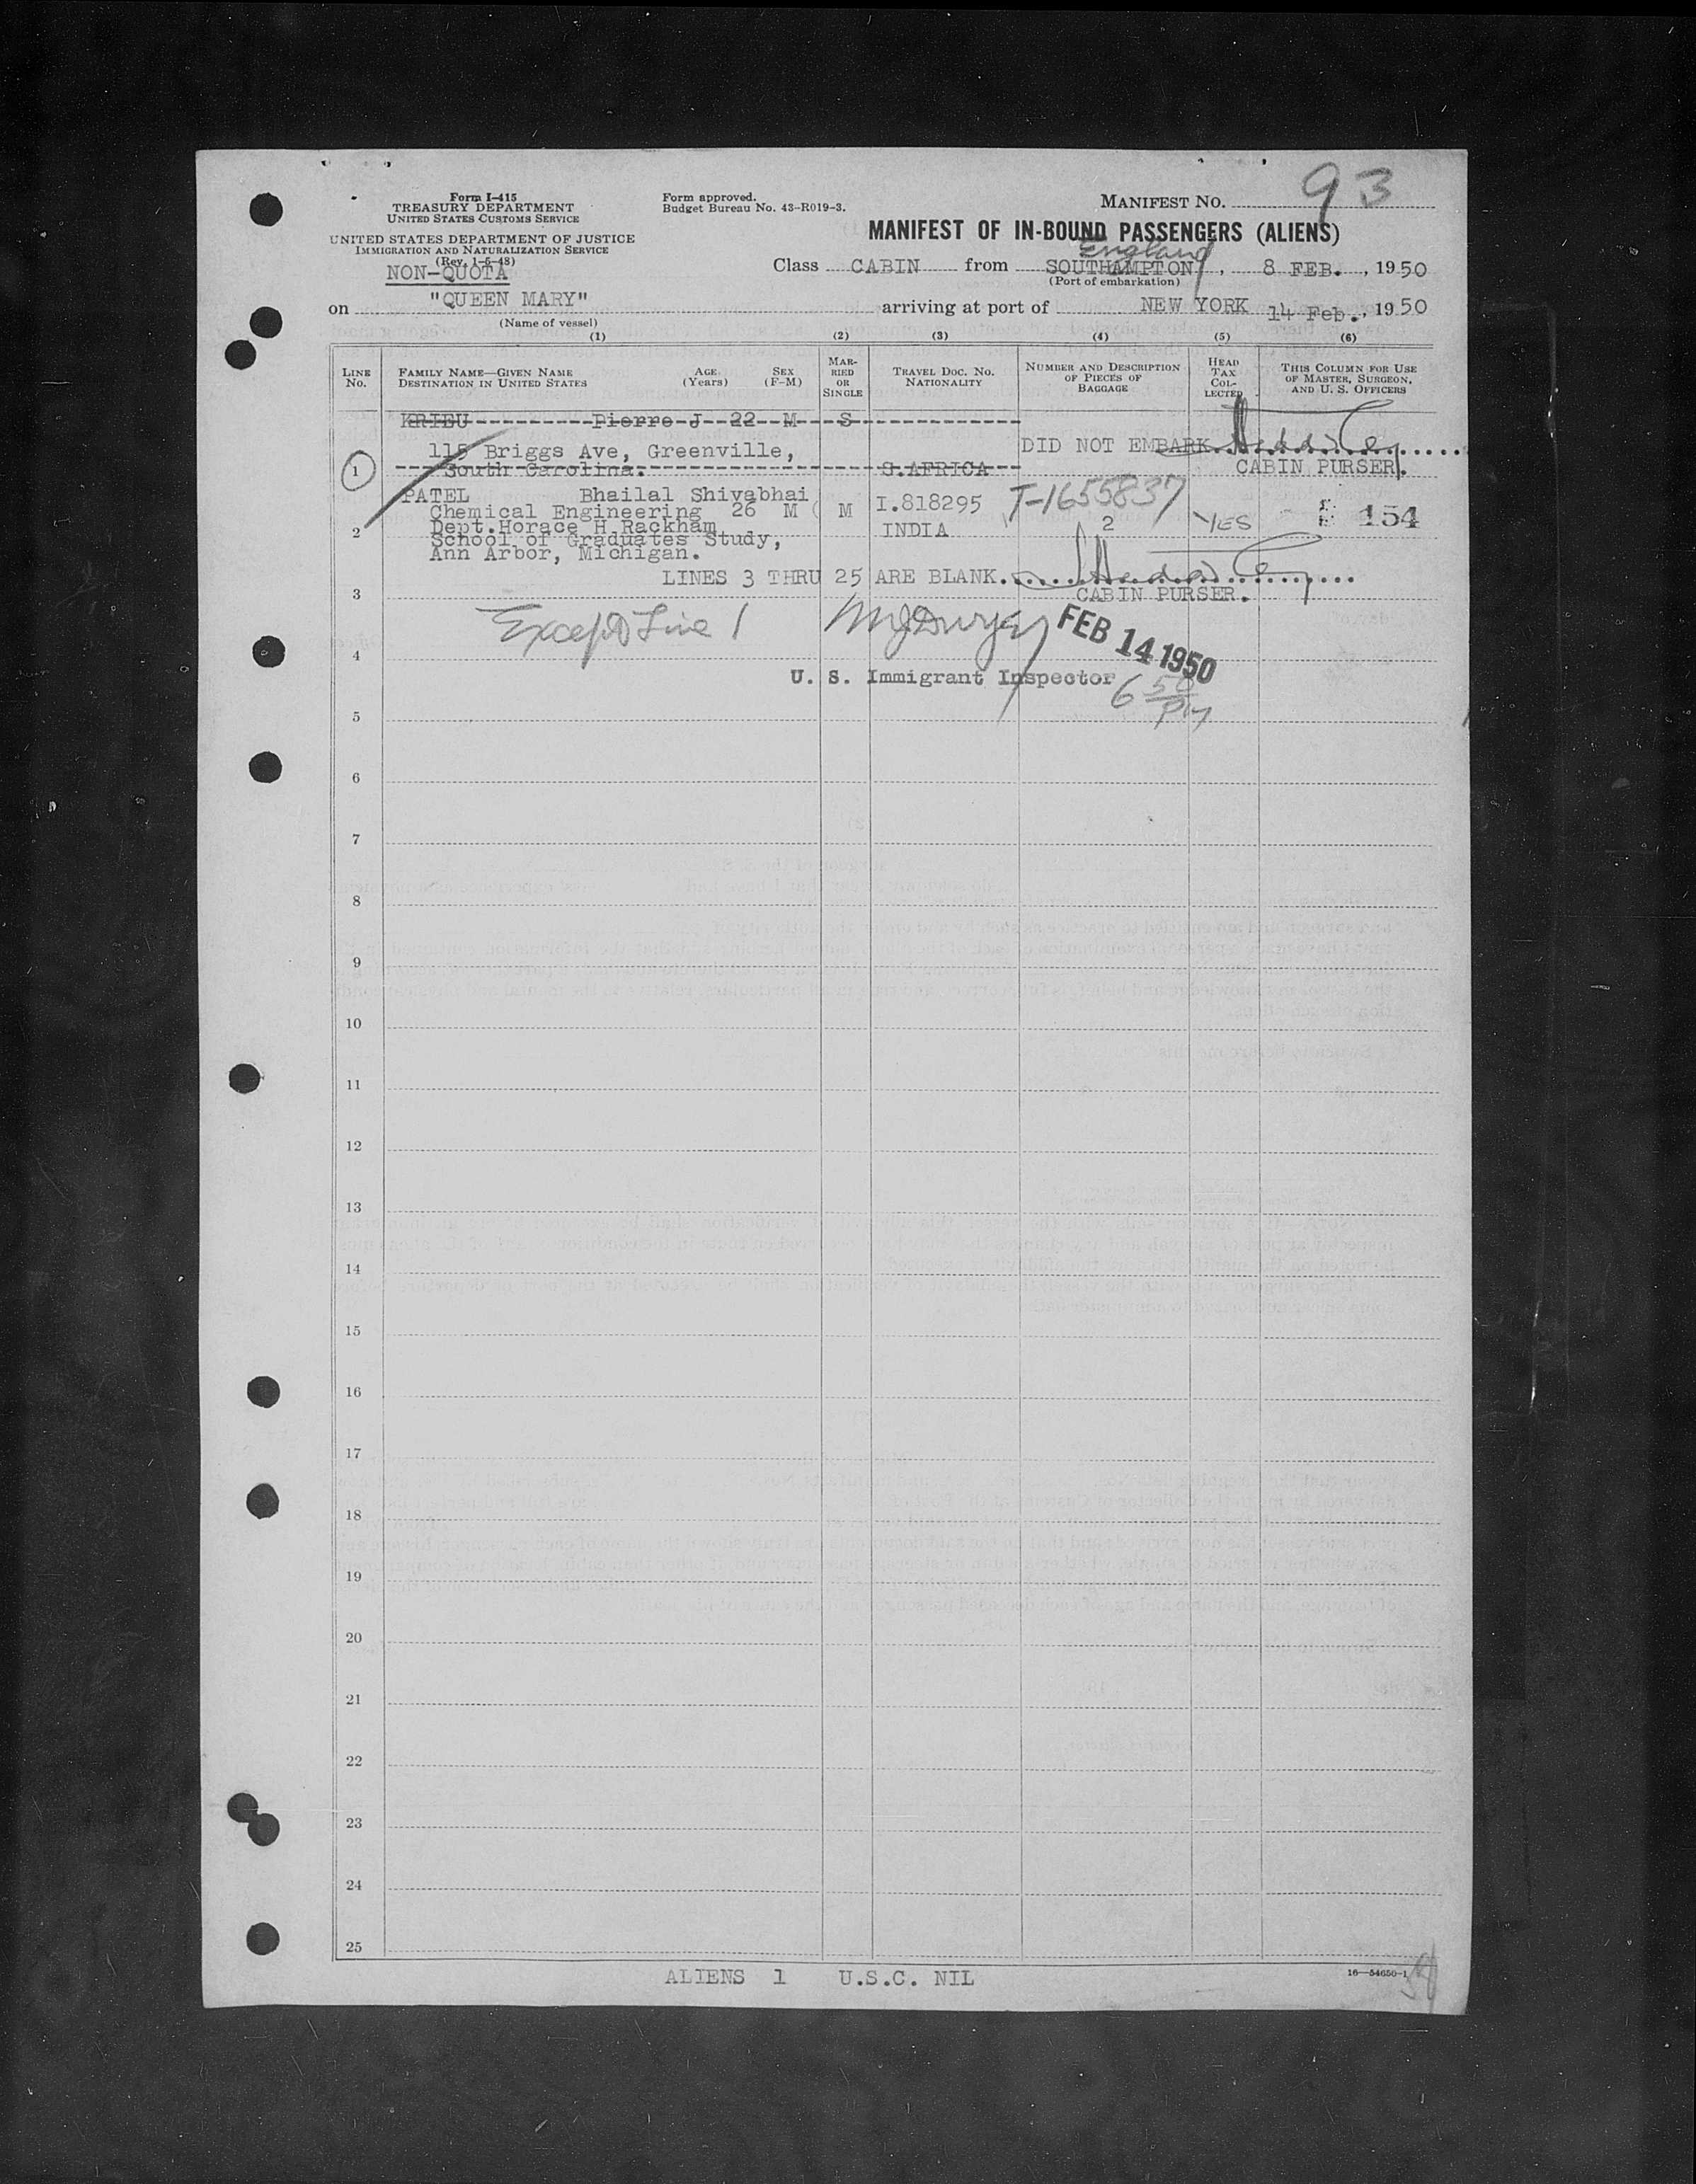 93
Form I-415
TREASURY DEPARTMENT
UNITED STATES CUSTOMS SERVICE
UNITED STATES DEPARTMENT OF JUSTICE
IMMIGRATION AND NATURALIZATION SERVICE
(Rev. 1-6-48)
NON-QUOTA
Form approved.
Budget Bureau No. 43-R019-3.
MANIFEST NO.
MANIFEST OF IN-BOUND PASSENGERS (ALIENS)
England
Class CABIN from SOUTHAMPTON, 8 FEB., 1950
(Port of embarkation)
on "QUEEN MARY" arriving at port of NEW YORK 14 Feb., 1950
(Name of vessel)
(1) (2) (3) (4) (5) (6)
LINE NO. FAMILY NAME—GIVEN NAME DESTINATION IN UNITED STATES AGE (Years) SEX (F-M) MARRIED OR SINGLE TRAVEL DOC. NO. NATIONALITY NUMBER AND DESCRIPTION OF PIECES OF BAGGAGE HEAD TAX COLLECTED THIS COLUMN FOR USE OF MASTER, SURGEON, AND U. S. OFFICERS
KRIEU Pierre J 22 M S
115 Briggs Ave, Greenville, DID NOT EMBARK
1 South Carolina. S.AFRICA CABIN PURSER.
PATEL Bhailal Shivabhai
Chemical Engineering 26 M M I.818295 T-1655837
2 Dept.Horace H.Rackham INDIA 2 YES 154
School of Graduates Study,
Ann Arbor, Michigan.
LINES 3 THRU 25 ARE BLANK.
3 CABIN PURSER.
Except Line 1 FEB 14 1950
4
U. S. Immigrant Inspector 6 50 PM
5
6
7
8
9
10
11
12
13
14
15
16
17
18
19
20
21
22
23
24
25
ALIENS 1 U.S.C. NIL
16—54650-1